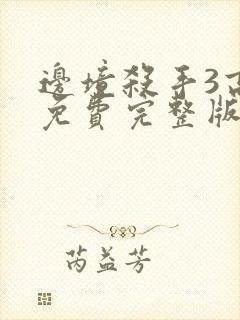 邊境殺手3高
免費完整版
芮益芳